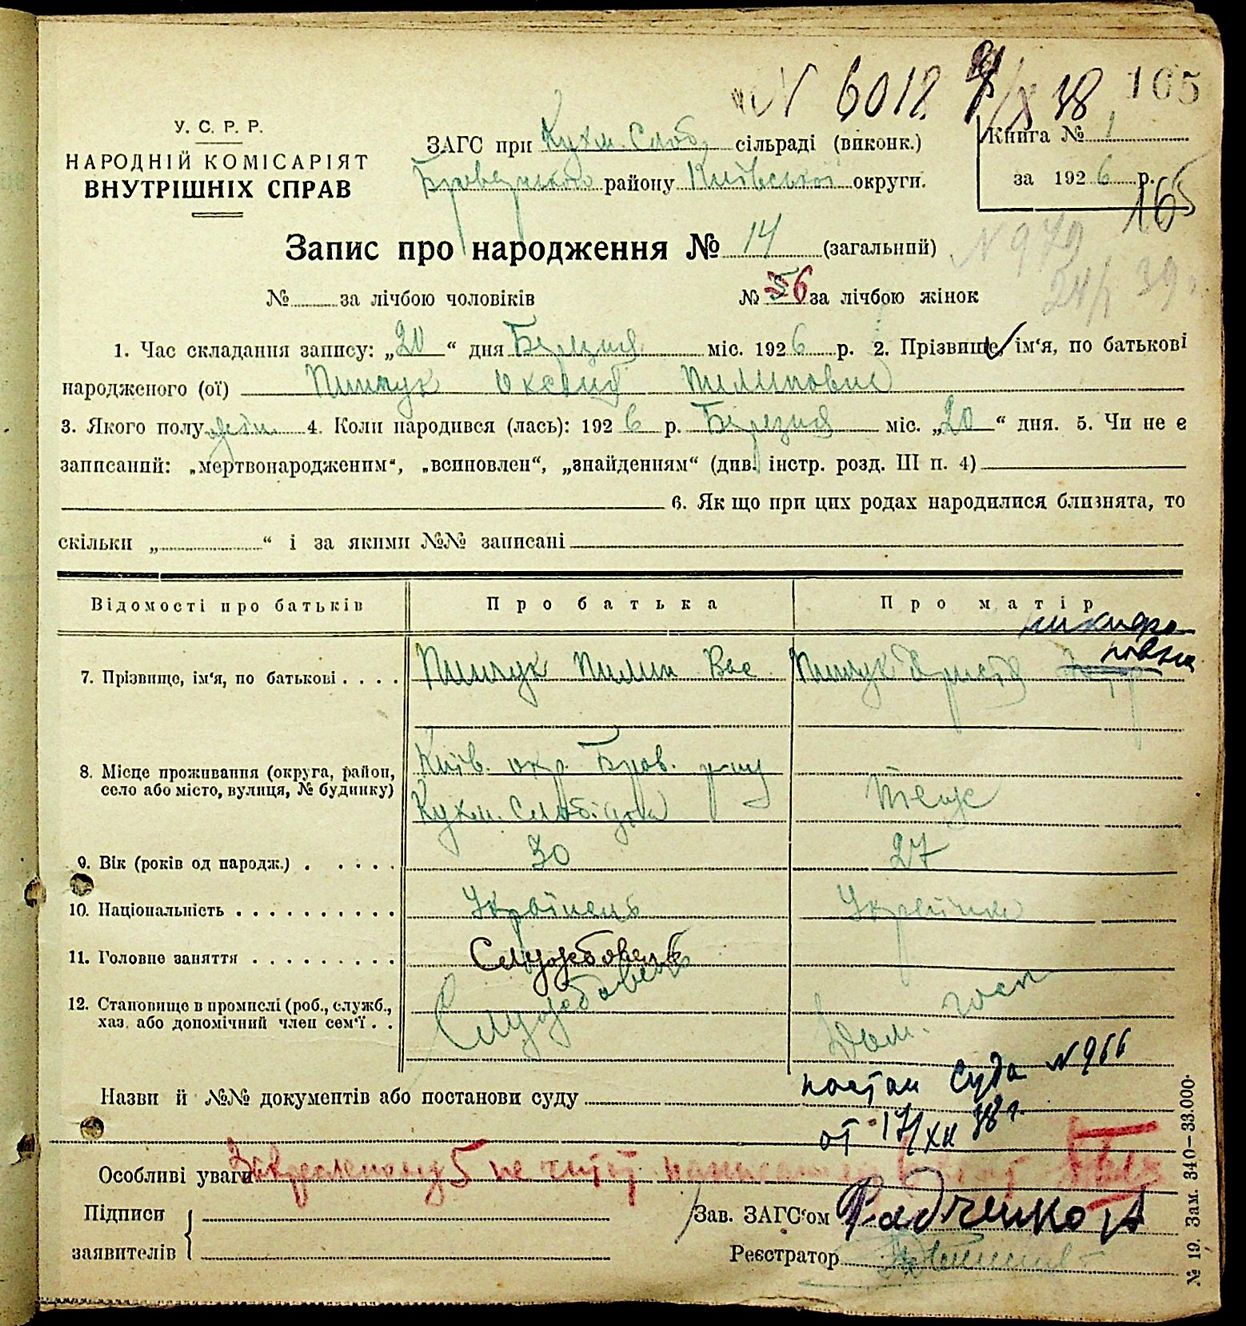 N 6018 X 38 165
У. С. Р. Р.
НАРОДНІЙ КОМІСАРІЯТ
ВНУТРІШНІХ СПРАВ
ЗАГС при Кухм. Слоб. сільраді (виконк.)
Броварського району Київської округи.
Книга № 1
за 1926 р.
165
Запис про народження № 14 (загальний)
N 979
24/I 39 г.
№ за лічбою чоловіків № 6 за лічбою жінок
1. Час складання запису: „20“ дня Березня міс. 1926 р. 2. Прізвище, ім'я, по батькові
народженого (ої) Пинчук Оксана Пилиповна
3. Якого полу жін. 4. Коли народився (лась): 1926 р. Березня міс. „20“ дня. 5. Чи не є
записаний: „мертвонародженим“, „всиновлен“, „знайденням“ (див. інстр. розд. III п. 4)
6. Як що при цих родах народилися близнята, то
скільки „ “ і за якими №№ записані
Відомості про батьків Про батька Про матір
7. Прізвище, ім'я, по батькові . . . . Пинчук Пилип Вас Пинчук Христя Никифоровна
8. Місце проживання (округа, район,
село або місто, вулиця, № будинку)
Київ. окр. Бров. р-ну
Кухм. Слобідка
Теж
9. Вік (років од народж.) . . . . . 30 27
10. Національність . . . . . . . . . . Українець Українка
11. Головне заняття . . . . . . . . . Службовець
12. Становище в промислі (роб., служб.,
хаз. або допомічний член сем'ї . .
Службовець
Дом. госп
Назви й №№ документів або постанови суду постан суда N 966
от 17/XII 38 г.
Особливі уваги Закресленому 5 не чит
Підписи
заявителів
Зав. ЗАГС'ом Радченко
Реєстратор
№ 19. Зам. 340—33.000.